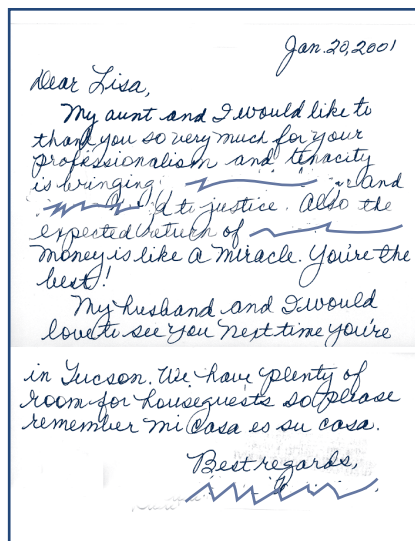 Jan. 20, 2001
Dear Lisa,
My aunt and I would like to
thank you so very much for your
professionalism and tenacity
is bringing and
to justice. Also the
expected return of
money is like a miracle. You're the
best!
My husband and I would
love to see you next time you're
in Tucson. We have plenty of
room for houseguests so please
remember mi casa es su casa.
Best regards,